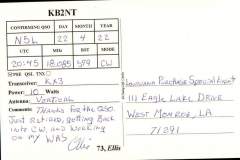 KB2NT
CONFIRMING QSO DAY MONTH YEAR
N5L 22 4 22
UTC MHz RST MODE
20:45 18.085 579 CW
PSE QSL TNX
Transceiver: KX3
Power: 10 Watts
Antenna: VERTICAL
Comments: THANKS FOR THE QSO.
Just retired, getting back
into CW, and working
on my WAS
Ellis
73, Ellis
Louisiana Purchase Special Event
111 Eagle Lake Drive
West Monroe, LA
71291